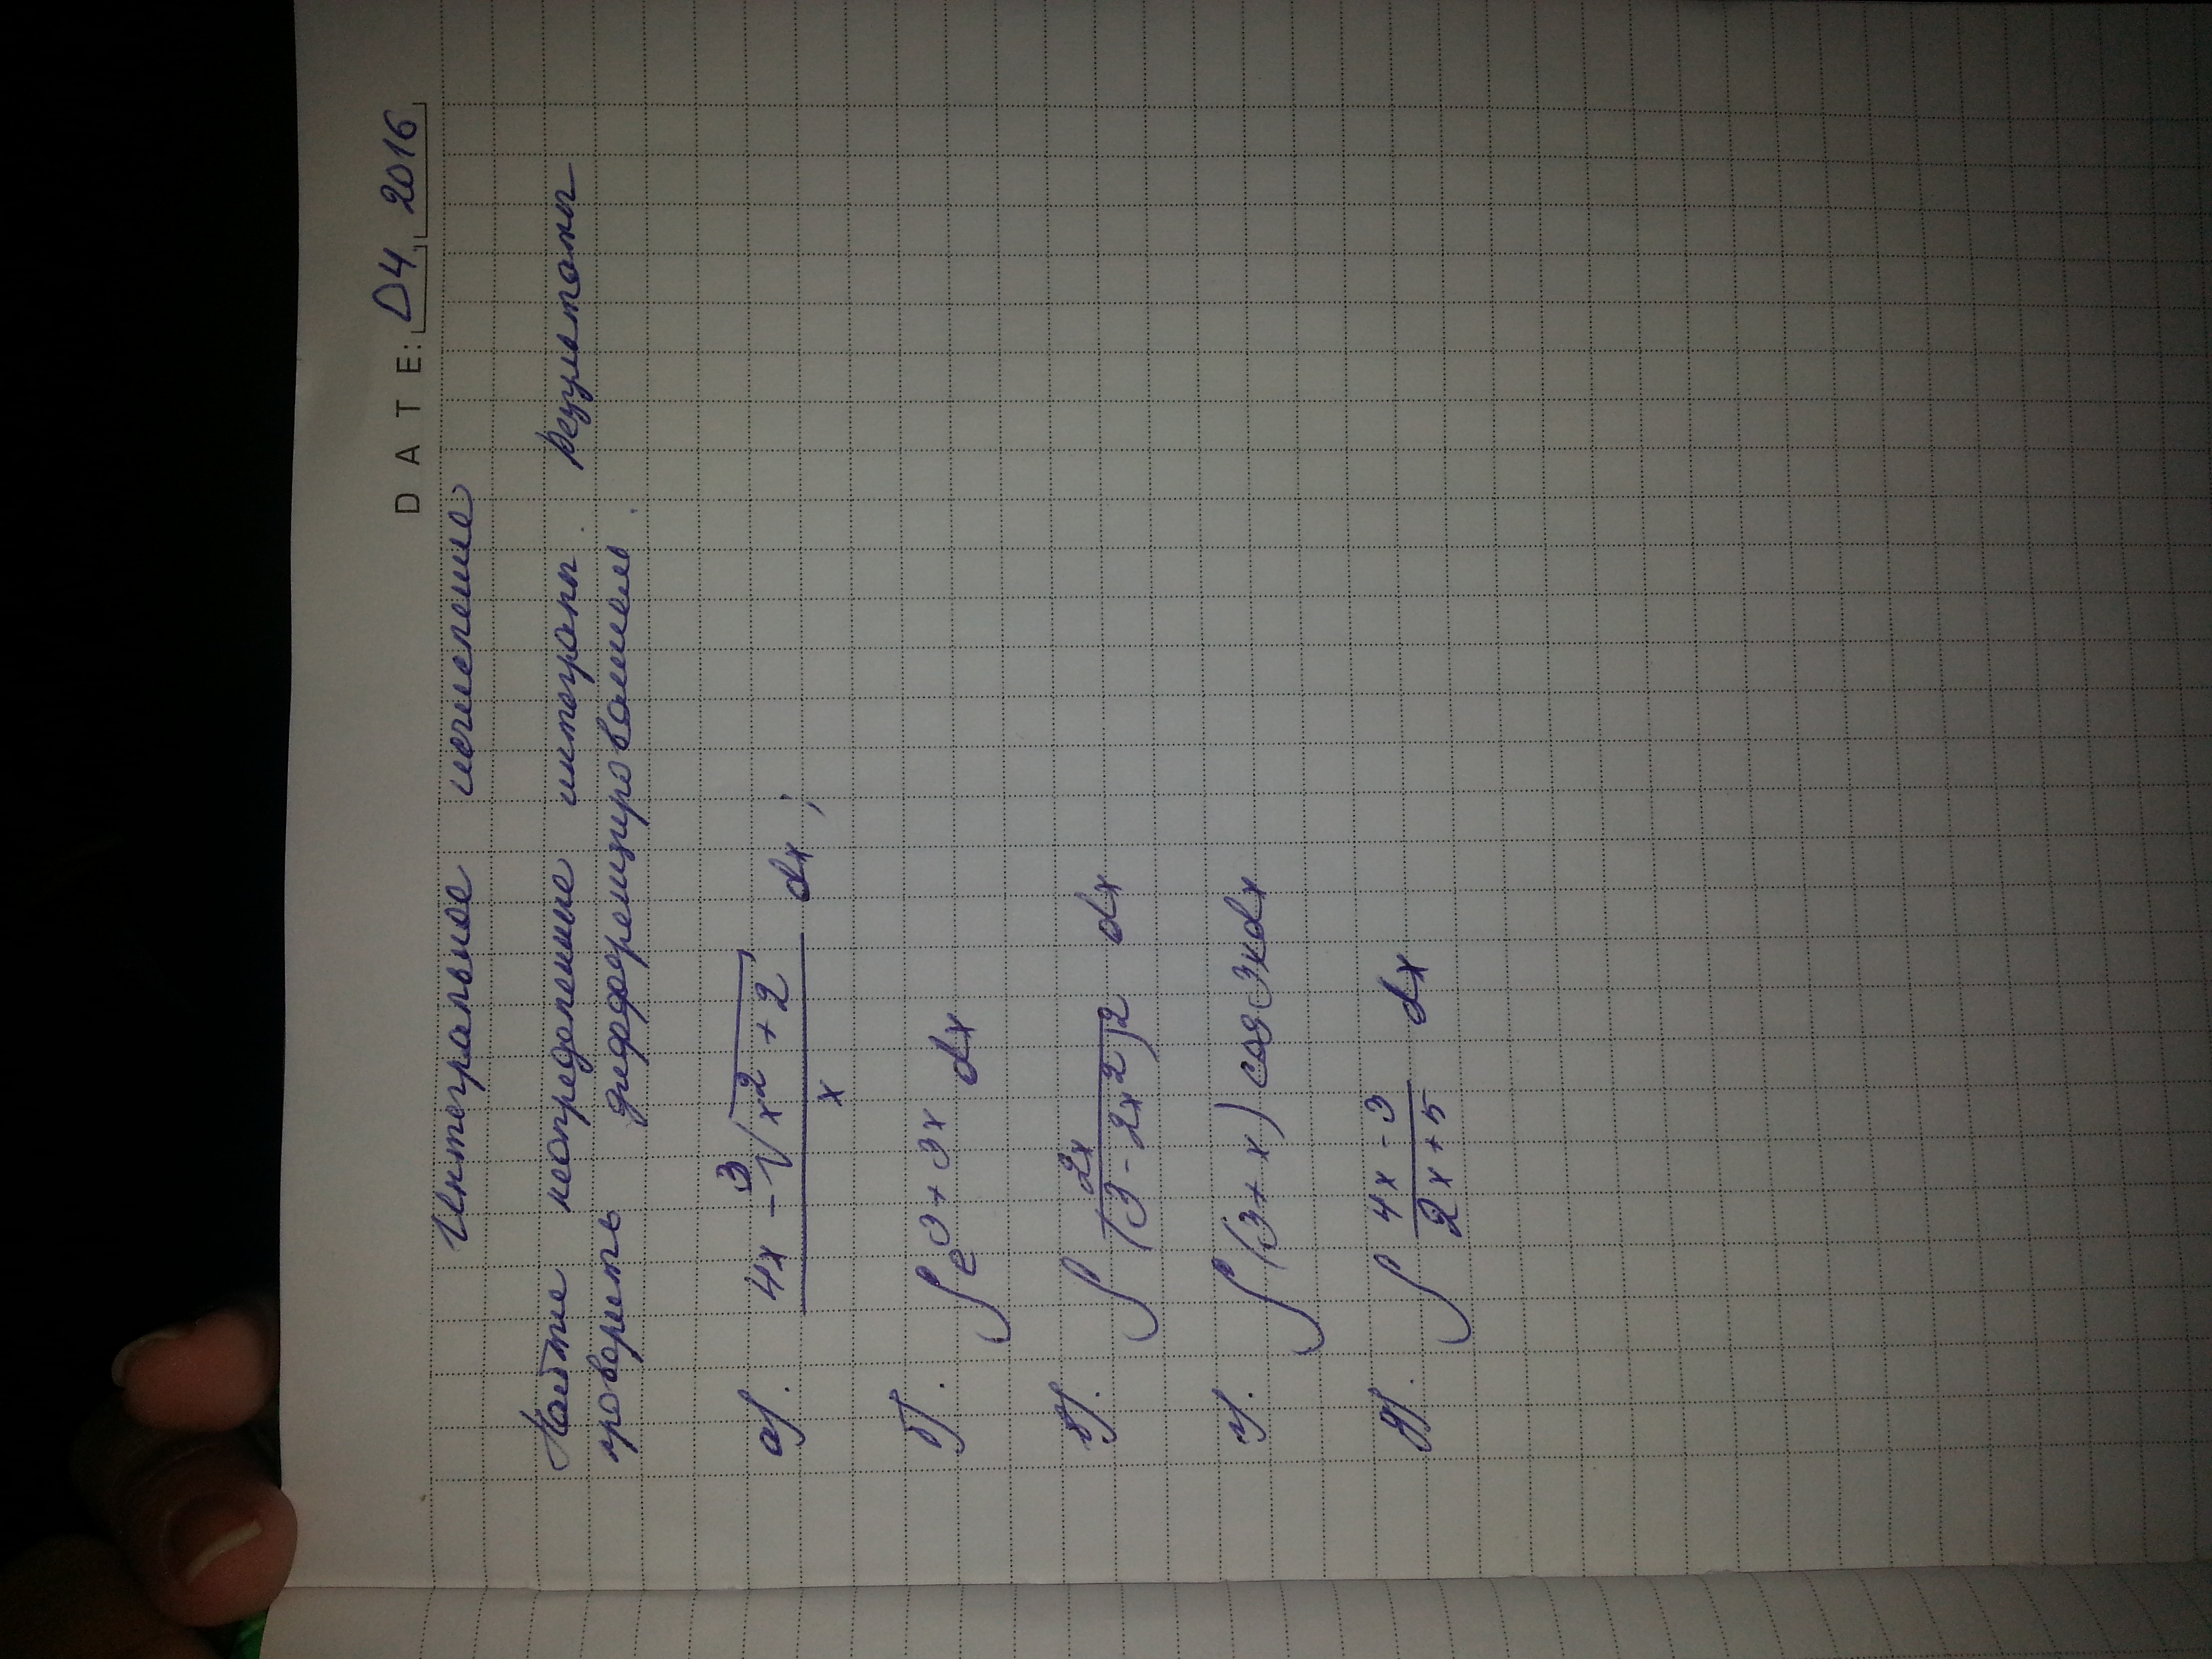 DATE: D4 2016
Интегральное исчисление
Найти неопределенные интегралы. Результаты
проверить дифференцированием.
а). (4x - ∛(x² + 2)) / x dx;
б). ∫ e^(3 + 3x) dx
в). ∫ 2x / (3 - 2x²)² dx
г). ∫ (3 + x) cos 3x dx
д). ∫ (4x - 3) / (2x + 5) dx